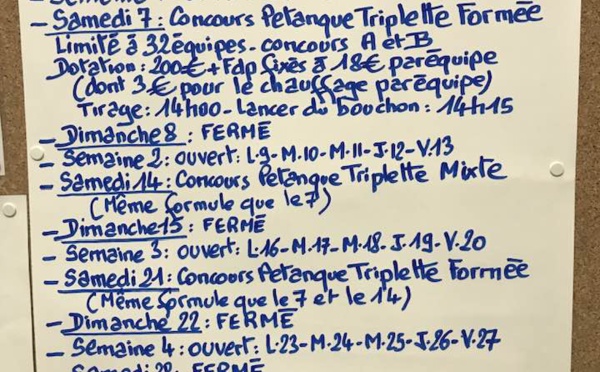 - Samedi 7 : Concours Petanque Triplette Formée
Limité à 32 équipes - concours A et B
Dotation : 200€ + Fdp fixés à 18€ par équipe
(dont 3€ pour le chauffage par équipe)
Tirage : 14h00 - Lancer du bouchon : 14h15
- Dimanche 8 : FERMÉ
- Semaine 2 : ouvert : L.9 - M.10 - M.11 - J.12 - V.13
- Samedi 14 : Concours Petanque Triplette Mixte
(Même formule que le 7)
- Dimanche 15 : FERMÉ
- Semaine 3 : ouvert : L.16 - M.17 - M.18 - J.19 - V.20
- Samedi 21 : Concours Petanque Triplette Formée
(Même formule que le 7 et le 14)
- Dimanche 22 : FERMÉ
- Semaine 4 : ouvert : L.23 - M.24 - M.25 - J.26 - V.27
- Samedi 28 : FERMÉ